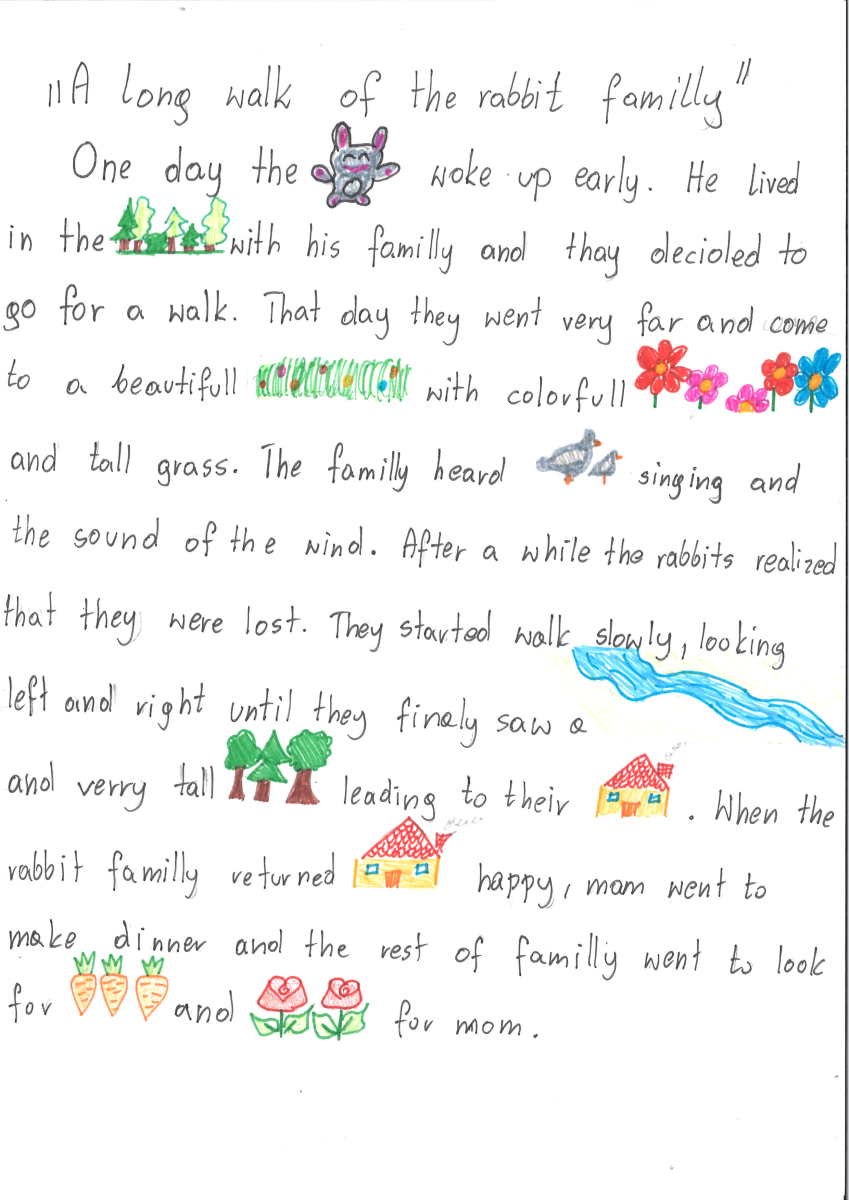 "A long walk of the rabbit familly"
One day the woke up early. He lived
in the with his familly and thay decioled to
go for a walk. That day they went very far and come
to a beautifull with colorfull
and tall grass. The familly heard singing and
the sound of the wind. After a while the rabbits realized
that they were lost. They started walk slowly, looking
left and right until they finely saw a
and verry tall leading to their . When the
rabbit familly returned happy, mam went to
make dinner and the rest of familly went to look
for and for mom.